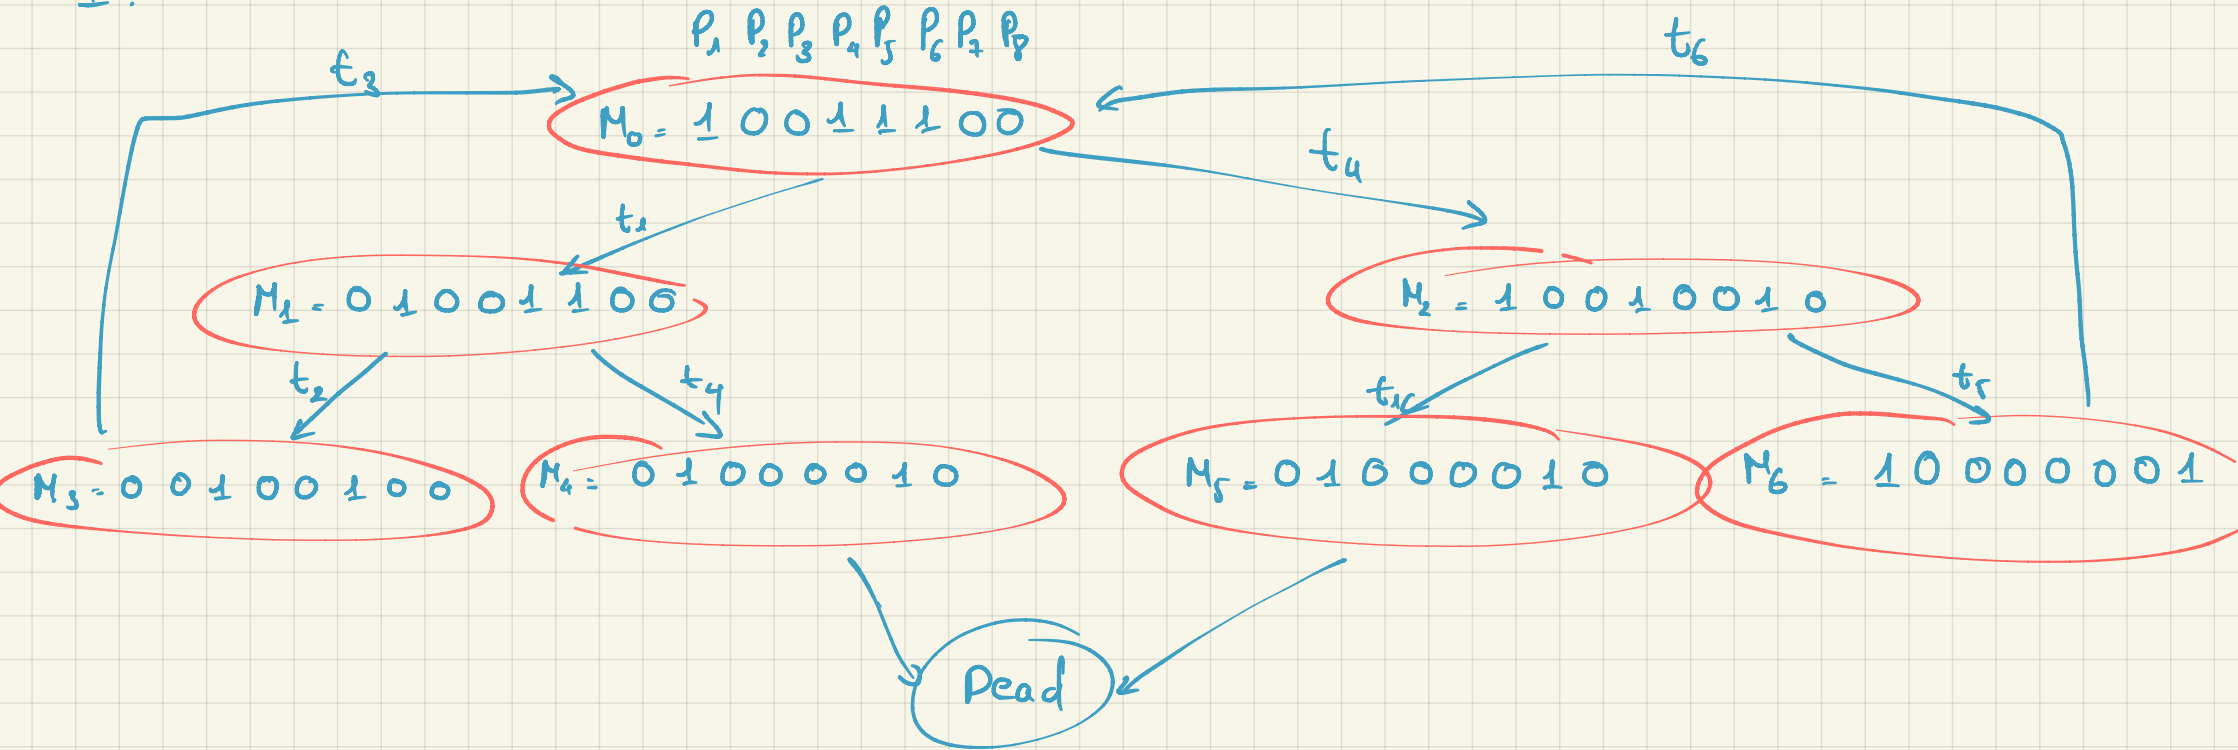 P1 P2 P3 P4 P5 P6 P7 P8
t3
t6
M0 = 1 0 0 1 1 1 0 0
t4
t1
M1 = 0 1 0 0 1 1 0 0
M2 = 1 0 0 1 0 0 1 0
t2
t4
t1
t5
M3 = 0 0 1 0 0 1 0 0
M4 = 0 1 0 0 0 0 1 0
M5 = 0 1 0 0 0 0 1 0
M6 = 1 0 0 0 0 0 0 1
Dead